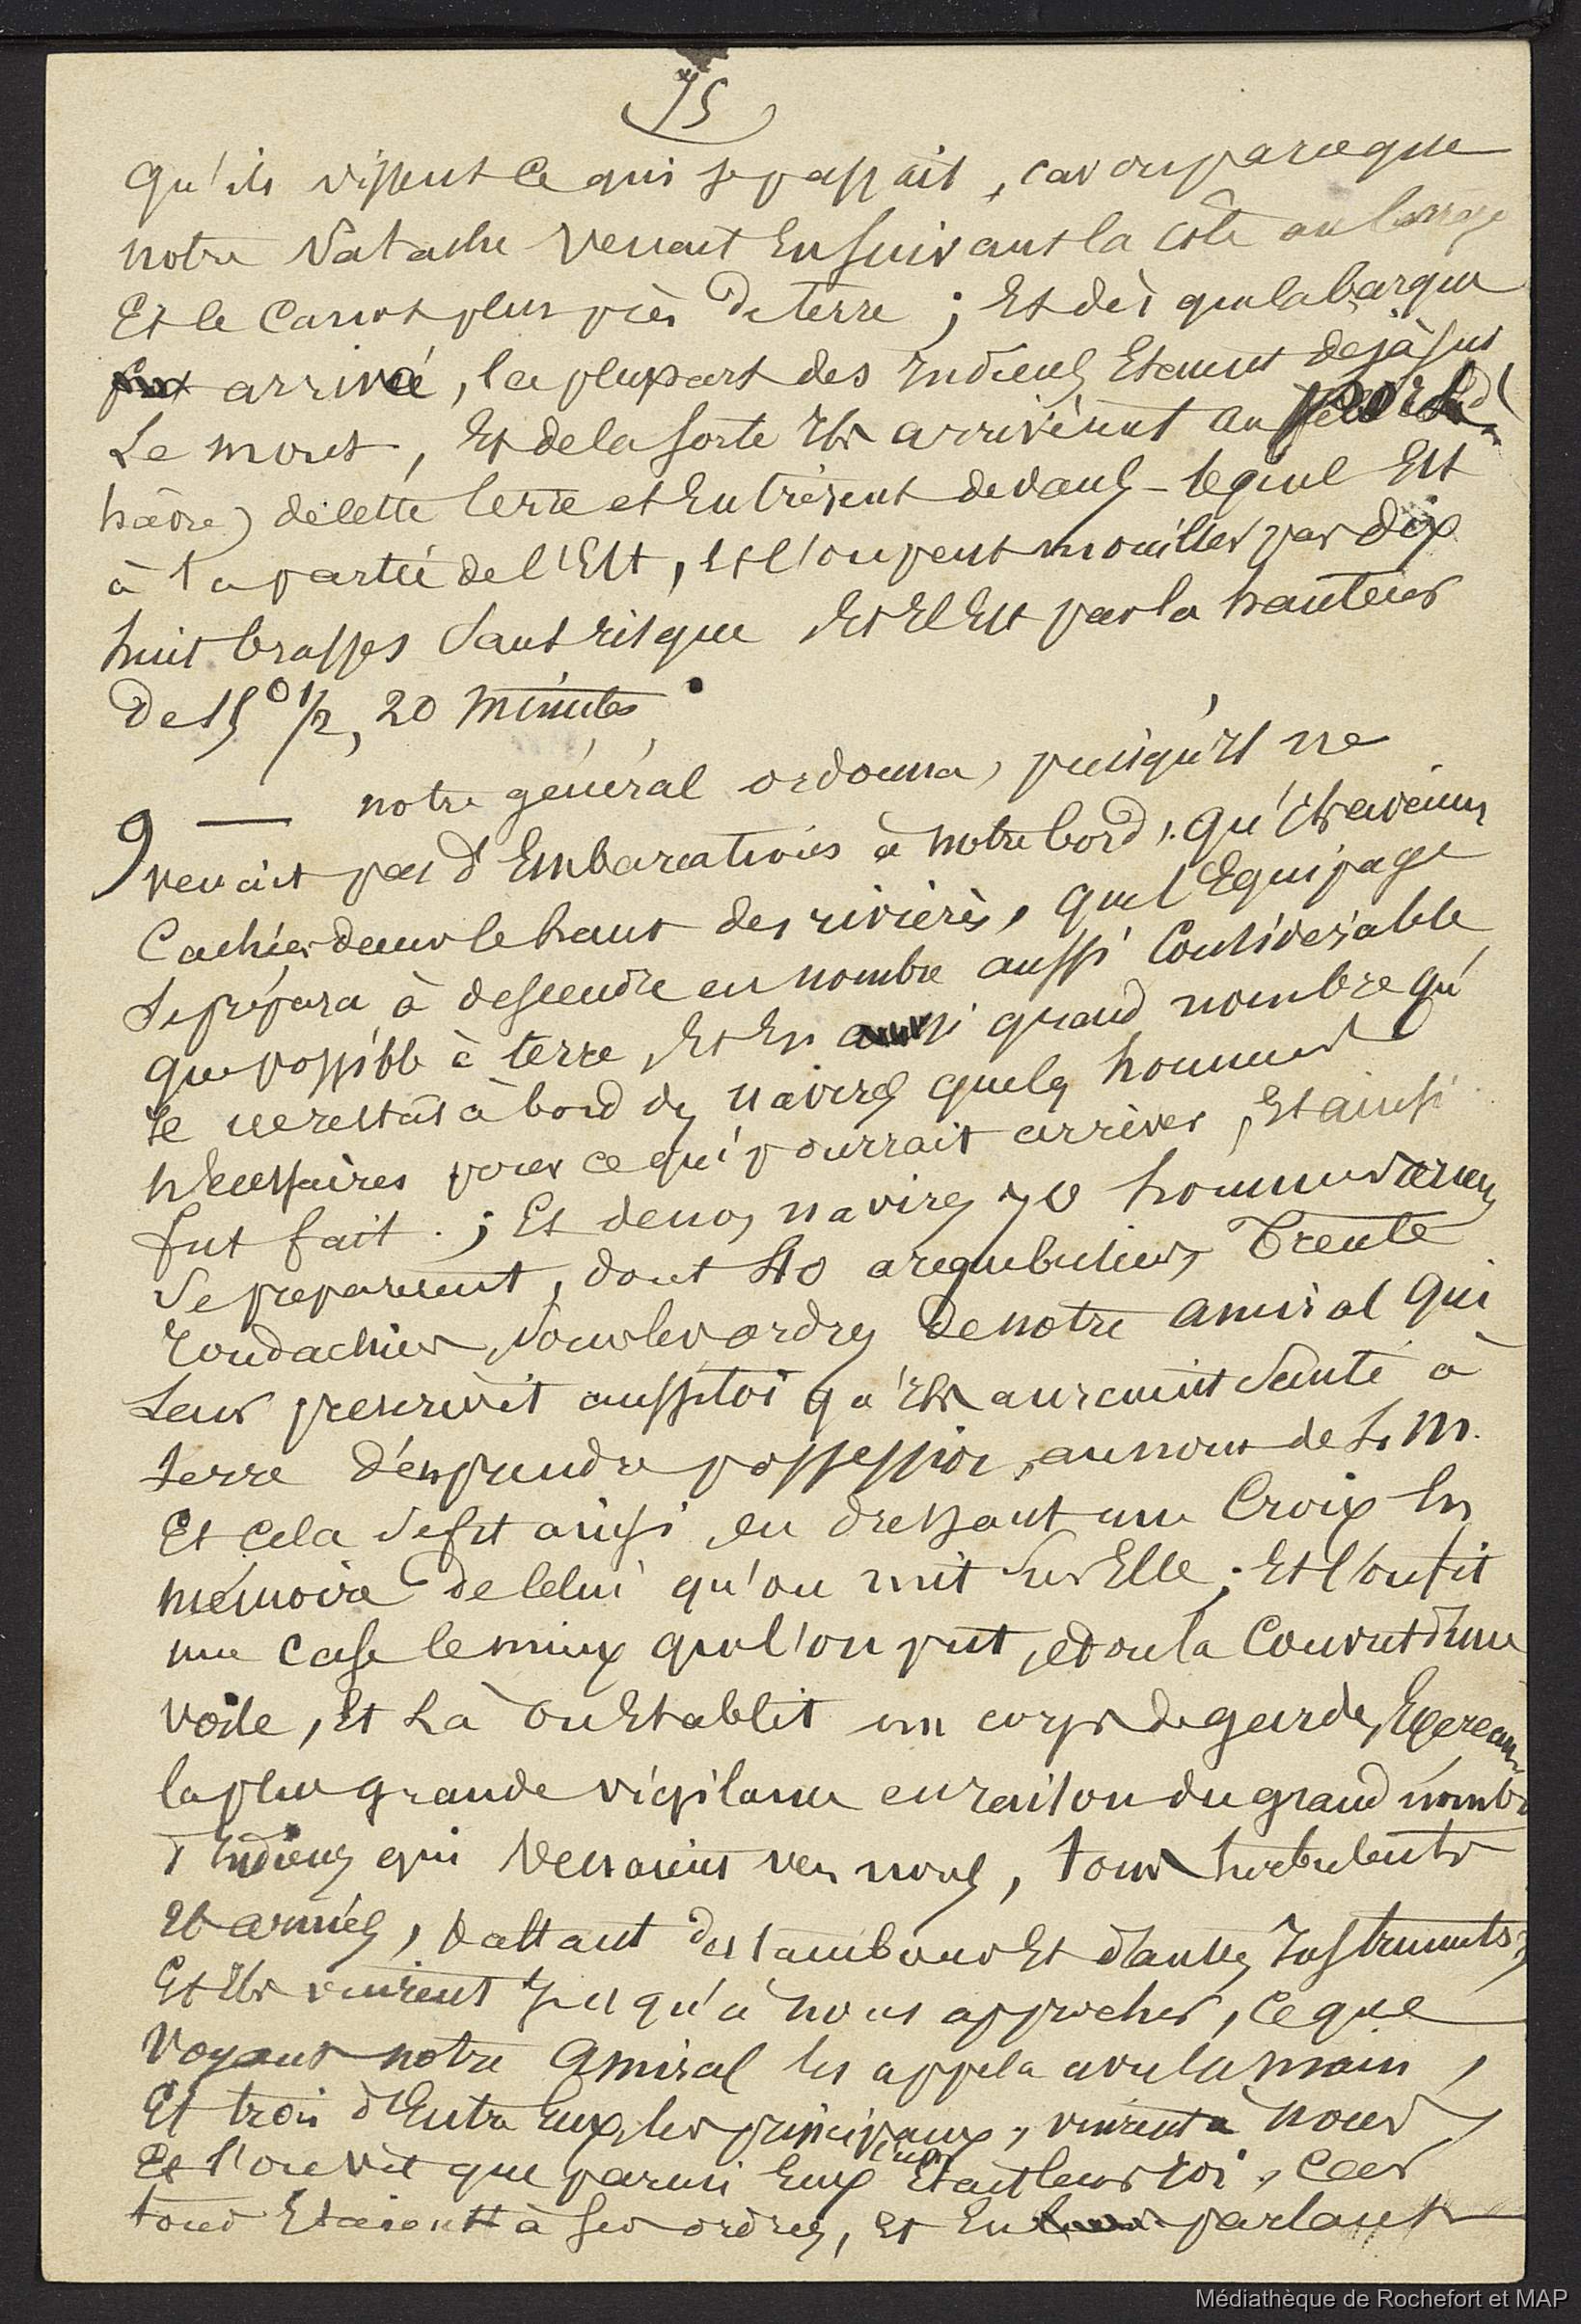 75
qu'ils vissent ce qui se passait, car on
notre Patache venait en suivant la côte au large
Et le Canot plus près de terre ; Et dès que la barque
fut arrivé, la plupart des Indiens Etaient dejà sur
Le mont, Et de la sorte Ils arrivèrent au port
hâvre) de cette terre et Entrèrent dedans - lequel Est
à la partie de l'Est, Et l'on peut mouiller par dix
huit brasses sans risque Et Il Est par la hauteur
De 15° 1/2, 20 minutes.
9 — notre général ordonna, puisqu'Il ne
venait pas d'Embarcations à notre bord, qu'Ils avaient
Cachées dans le haut des rivières, que l'Equipage
se prépara à descendre en nombre aussi Considérable
que possible à terre, Et En aussi grand nombre qu'
Il ne restât à bord des navires que les hommes
nécessaires pour ce qui pourrait arriver, Et ainsi
fut fait. ; Et de nos navires 70 hommes armés
se préparèrent, dont 40 arquebusiers, Trente
Rondachiers, sous les ordres De notre amiral qui
Leur prescrivit aussitôt qu'Ils auraient sauté à
terre d'en prendre possession, au nom de S. M.
Et cela se fit ainsi, en dressant une Croix En
mémoire de Celui qu'on mit sur Elle ; Et l'on fit
une case le mieux que l'on put, et on la Couvrit d'une
voile, Et Là on Etablit un corps de garde,
la plus grande vigilance en raison du grand nombre
d'Indiens qui venaient vers nous, tous turbulents
Et armés, battant des tambours Et d'autres Instruments ;
Et Ils vinrent jusqu'à nous approcher, ce que
Voyant notre Amiral les appela avec la main,
Et trois d'Entre Eux, les principaux, vinrent à nous
Et l'on vit que parmi Eux Etait leur roi, car
tous Etaient à ses ordres, et En parlant
Médiathèque de Rochefort et MAP